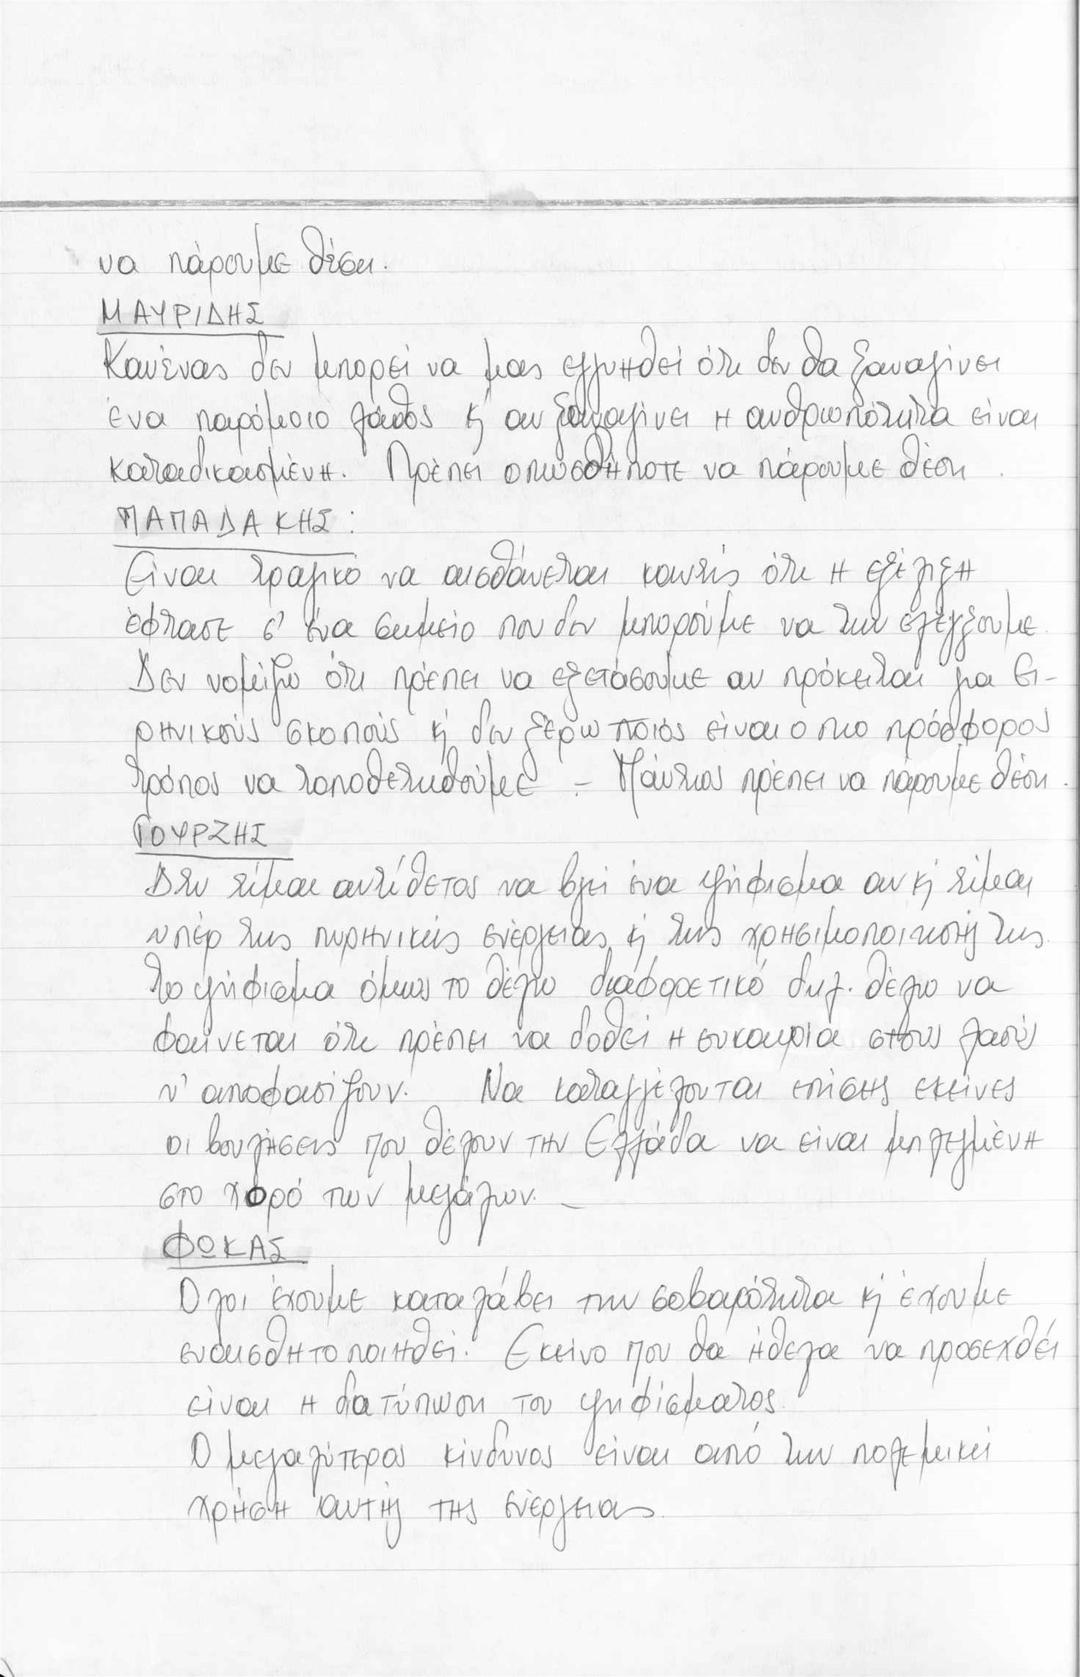 να πάρουμε θέση.
ΜΑΥΡΙΔΗΣ
Κανένας δεν μπορεί να μας εγγυηθεί ότι δεν θα ξαναγίνει
ένα παρόμοιο λάθος ή αν ξαναγίνει η ανθρωπότητα είναι
καταδικασμένη. Πρέπει οπωσδήποτε να πάρουμε θέση.
ΠΑΠΑΔΑΚΗΣ:
Είναι τραγικό να αισθάνεται κανείς ότι η εξέλιξη
έφτασε σ' ένα σημείο που δεν μπορούμε να την ελέγξουμε.
Δεν νομίζω ότι πρέπει να εξετάσουμε αν πρόκειται για ει-
ρηνικούς σκοπούς ή δεν ξέρω ποιός είναι ο πιο πρόσφορος
τρόπος να τοποθετηθούμε - Πάντως πρέπει να πάρουμε θέση.
ΓΟΥΡΖΗΣ
Δεν είμαι αντίθετος να βγεί ένα ψήφισμα αν κ' είμαι
υπέρ της πυρηνικής ενέργειας κ' της χρησιμοποίησής της.
Το ψήφισμα όμως το θέλω διαφορετικό δηλ. θέλω να
φαίνεται ότι πρέπει να δοθεί η ευκαιρία στους λαούς
ν' αποφασίζουν. Να καταγγέλουνται επίσης εκείνες
οι βουλήσεις που θέλουν την Ελλάδα να είναι μπλεγμένη
στο χορό των μεγάλων. -
ΦΩΚΑΣ
Όλοι έχουμε καταλάβει την σοβαρότητα κ' έχουμε
ευαισθητοποιηθεί. Εκείνο που θα ήθελα να προσεχθεί
είναι η διατύπωση του ψηφίσματος.
Ο μεγαλύτερος κίνδυνος είναι από την πολεμική
χρήση αυτής της ενέργειας.